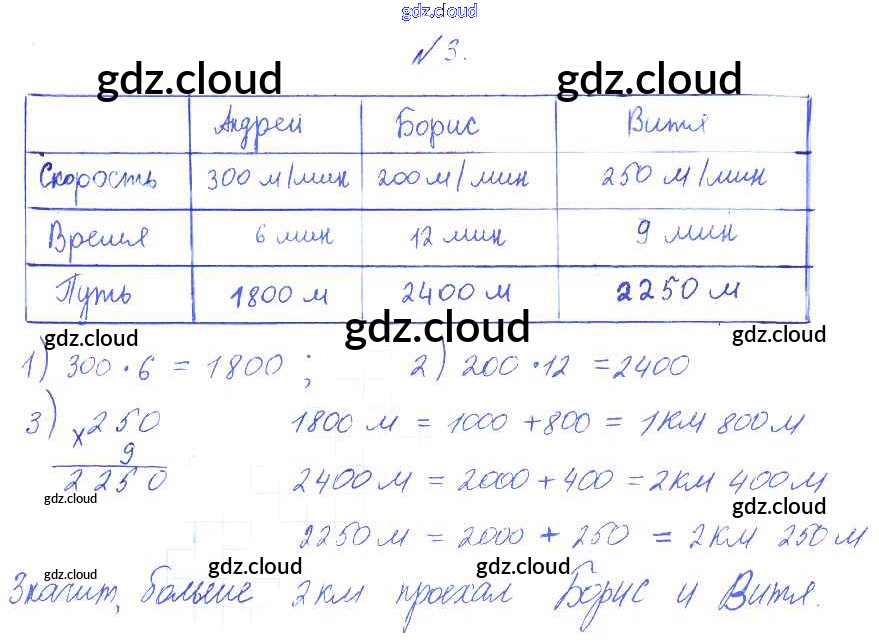 gdz.cloud
№ 3.
gdz.cloud gdz.cloud
Андрей Борис Витя
Скорость 300 м/мин 200 м/мин 250 м/мин
Время 6 мин 12 мин 9 мин
Путь 1800 м 2400 м 2250 м
gdz.cloud gdz.cloud gdz.cloud
1) 300 · 6 = 1800 ; 2) 200 · 12 = 2400
3) × 250 1800 м = 1000 + 800 = 1 км 800 м
9
2250 2400 м = 2000 + 400 = 2 км 400 м
gdz.cloud gdz.cloud
2250 м = 2000 + 250 = 2 км 250 м
gdz.cloud gdz.cloud gdz.cloud
Значит, больше 2 км проехал Борис и Витя.